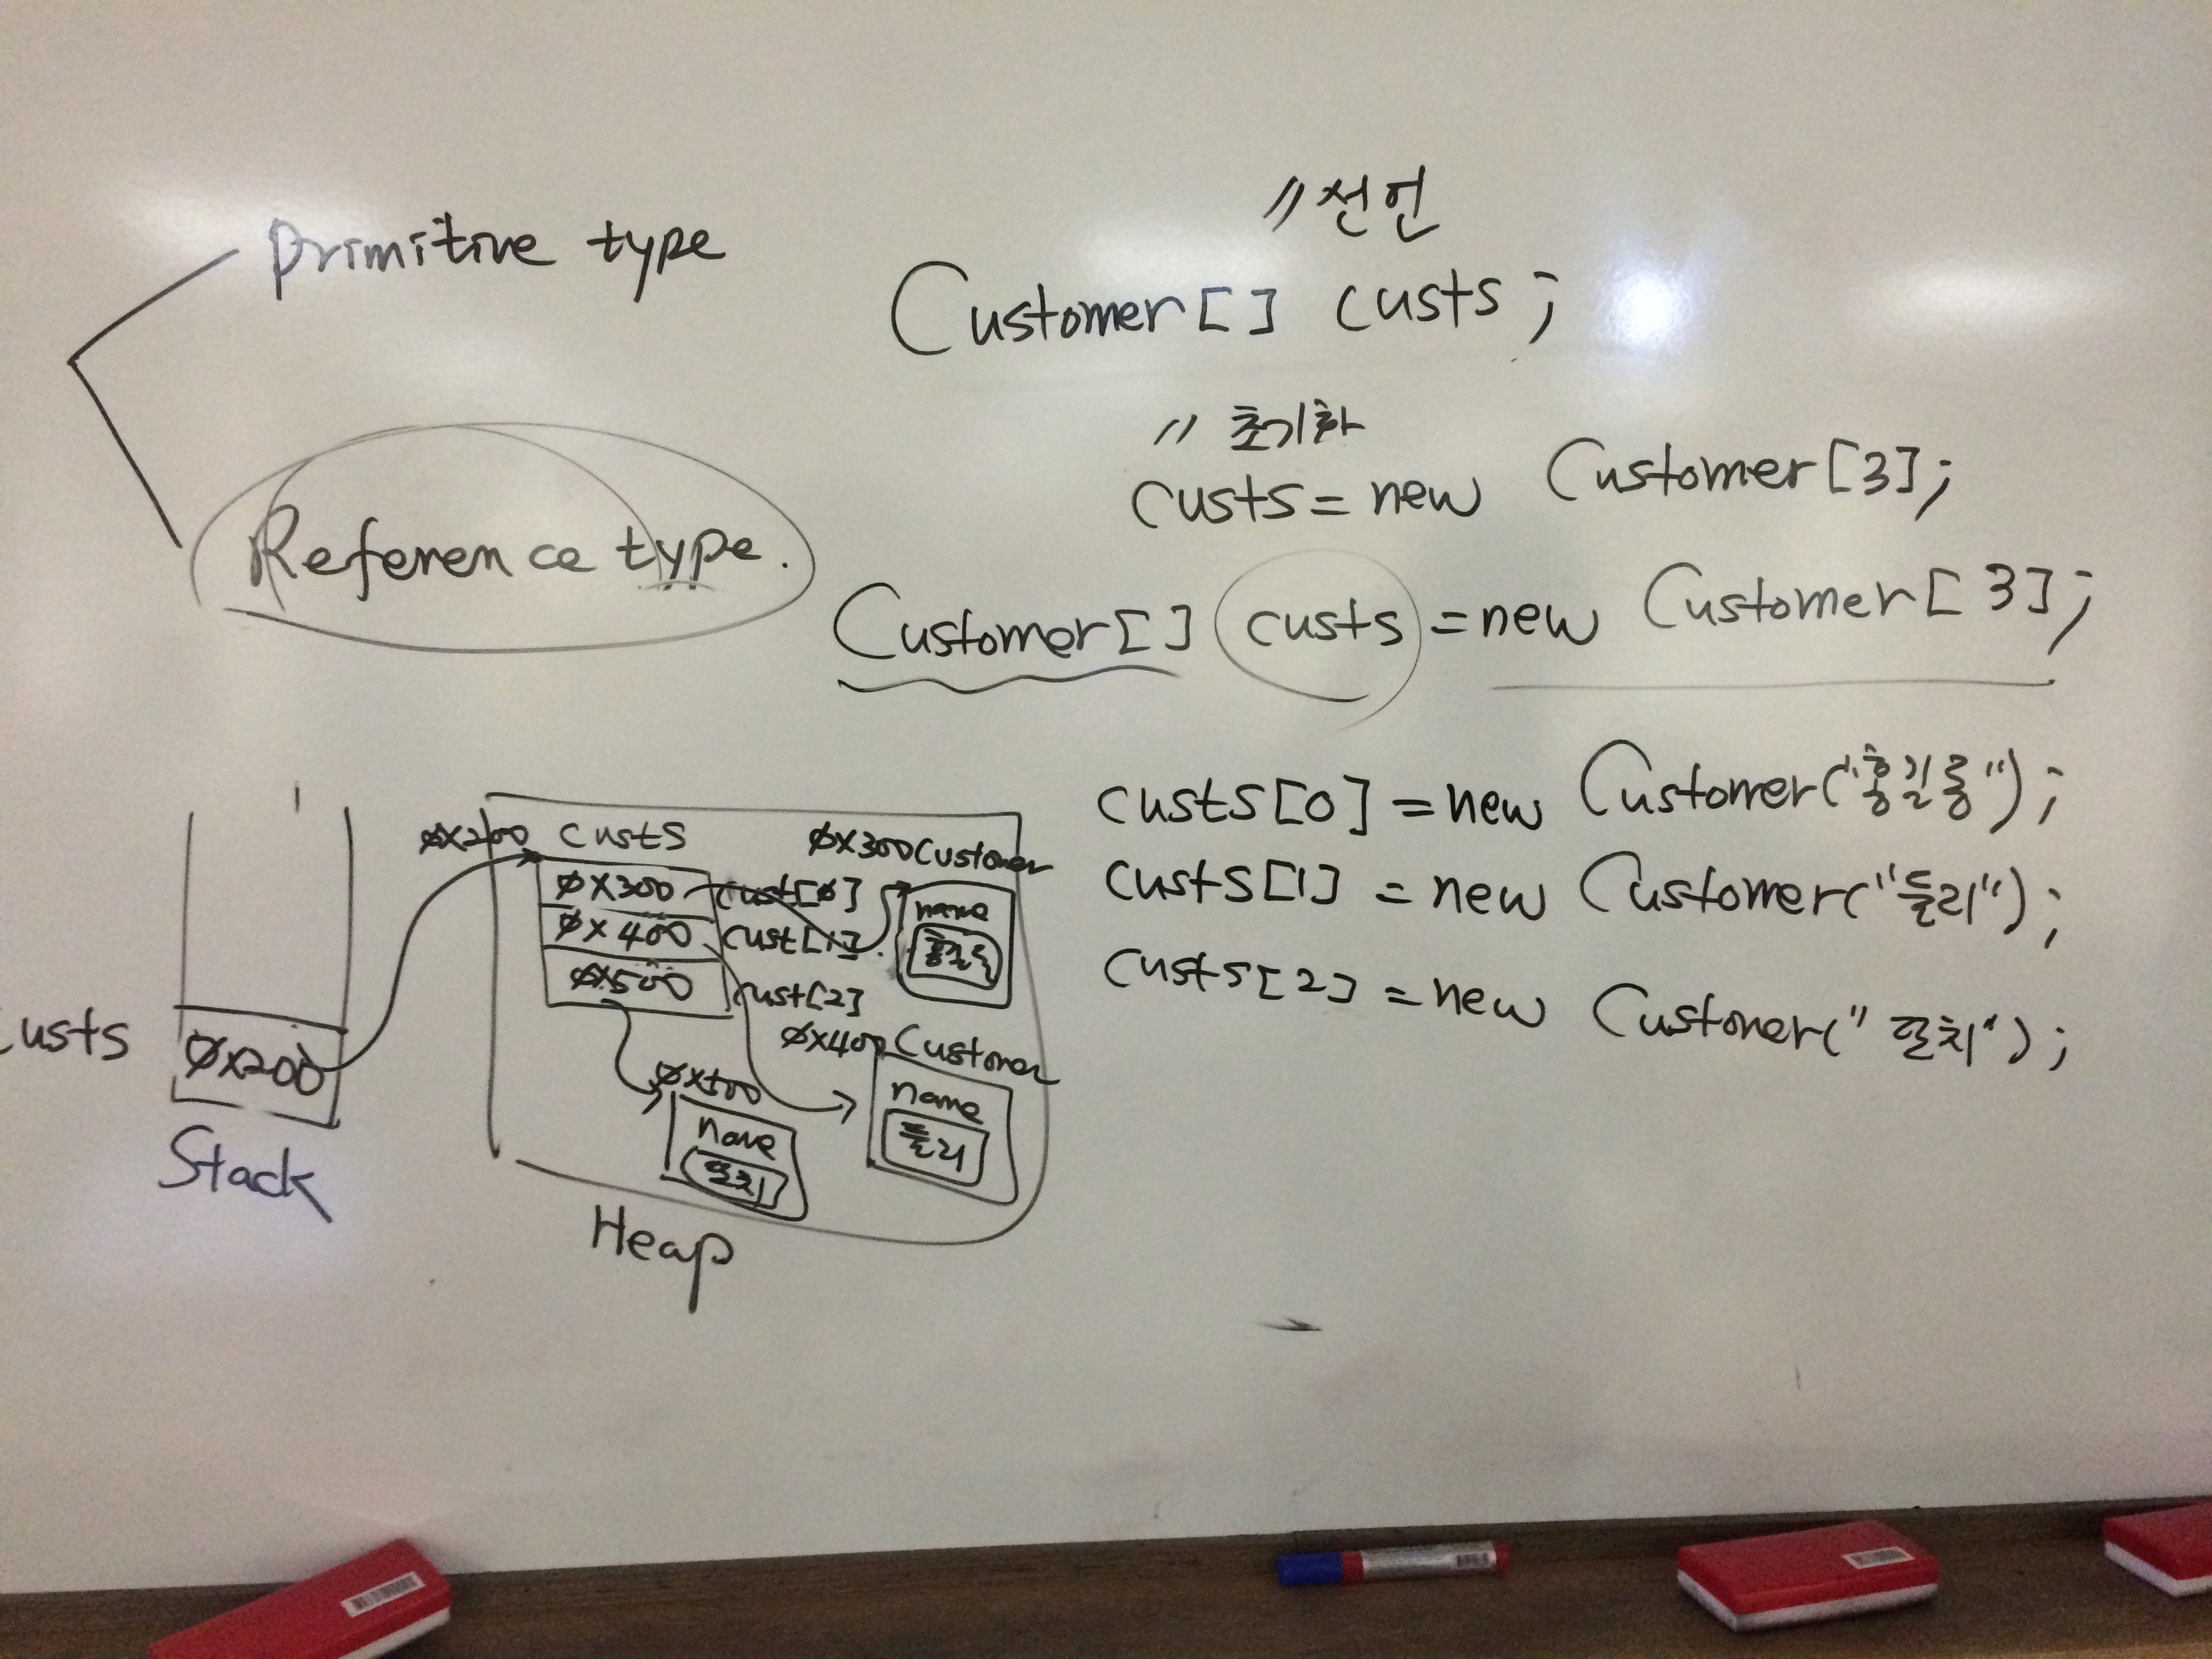 primitive type
Reference type.
// 선언
Customer[] custs;
// 초기화
custs = new Customer[3];
Customer[] custs = new Customer[3];
custs[0] = new Customer("홍길동");
custs[1] = new Customer("둘리");
custs[2] = new Customer("또치");
custs
0x200
Stack
0x200 custs
0x300 cust[0]
0x400 cust[1]
0x500 cust[2]
0x300 Customer
name
홍길동
0x400 Customer
name
둘리
0x500
name
또치
Heap